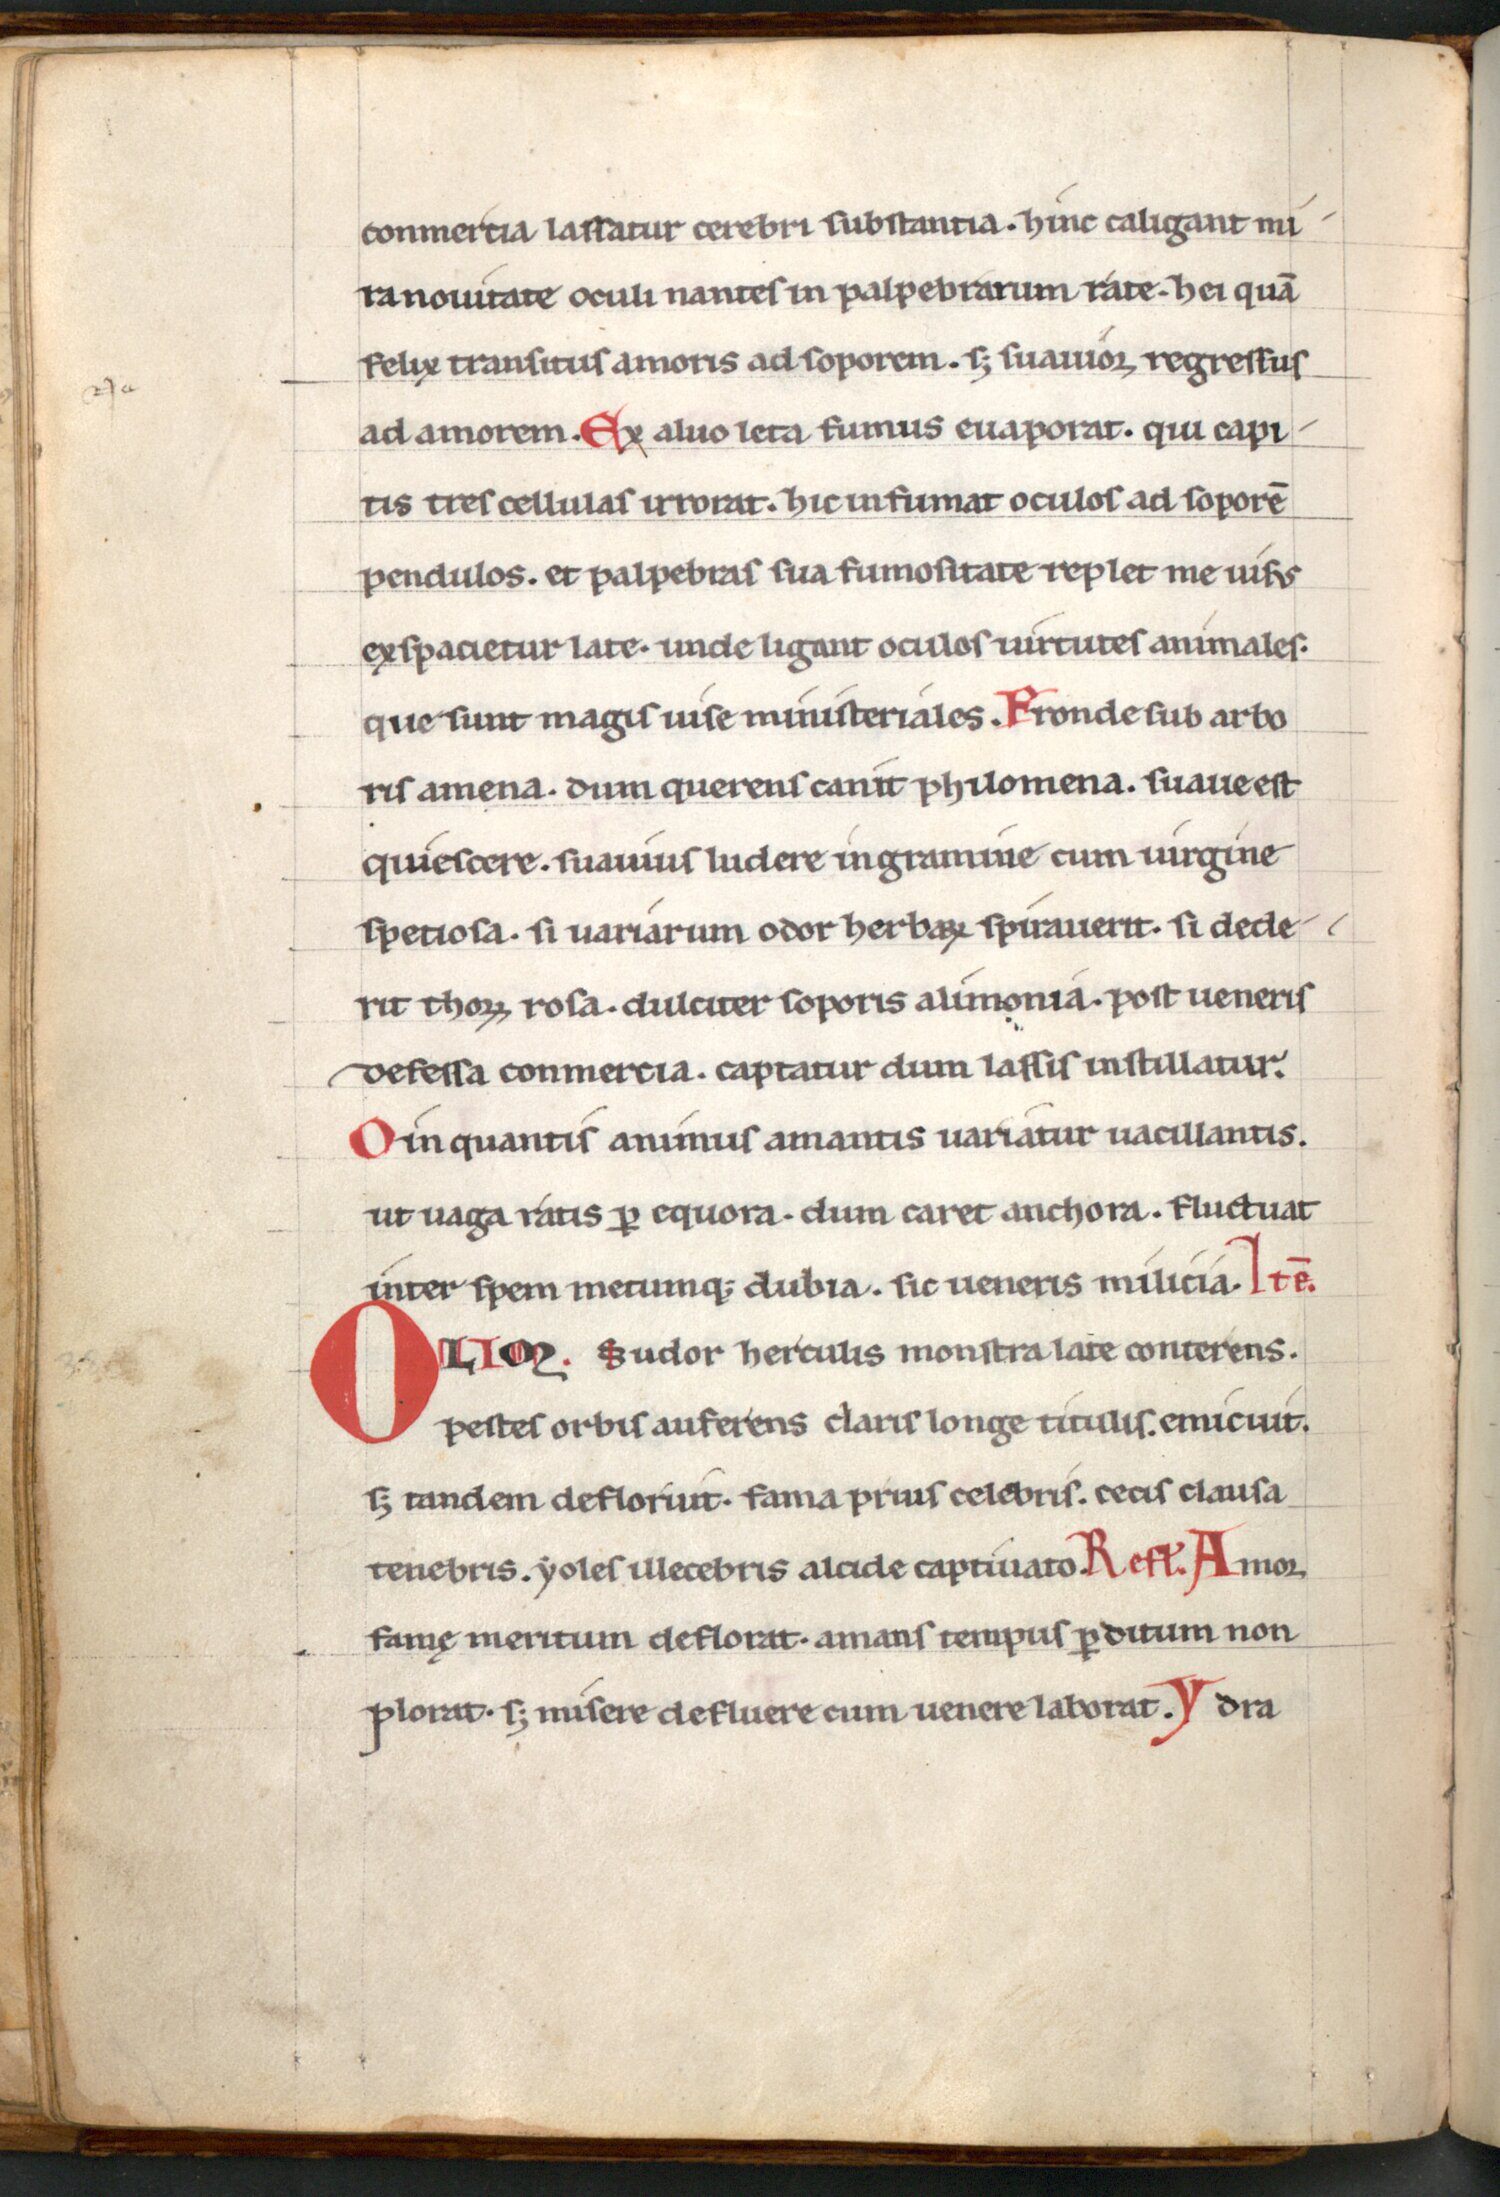 conmercia lassatur cerebri substantia. hinc caligant mi-
ra nouitate oculi nantes in palpebrarum rate. hei quā
felix transitus amoris ad soporem. sꝫ suauioꝝ regressus
ad amorem. Ex aluo leta fumus euaporat. qui capi-
tis tres cellulas irrorat. hic infumat oculos ad soporē
pendulos. et palpebras sua fumositate replet me uisus
exspacietur late. unde ligant oculos uirtutes animales.
que sunt magis uise ministeriales. Fronde sub arbo
ris amena. dum querens canit philomena. suaue est
quiescere. suauius ludere in gramine cum uirgine
spetiosa. si uariarum odor herbaꝝ spirauerit. si dede-
rit thoꝝ rosa. dulciter soporis alimonia. post ueneris
defessa conmercia. captatur dum lassis instillatur.
O in quantis animus amantis uariatur uacillantis.
ut uaga ratis ꝑ equora. dum caret anchora. fluctuat
inter spem metumqꝫ dubia. sic ueneris milicia. Itē.
OLIM. Sudor herculis monstra late conterens.
pestes orbis auferens claris longe titulis. emicuit.
sꝫ tandem defloruit. fama prius celebris. cecis clausa
tenebris. yoles illecebris alcide captiuato. Refl. Amoꝝ
famę meritum deflorat. amans tempus ꝑditum non
plorat. sꝫ misere defluere cum uenere laborat. Ydra